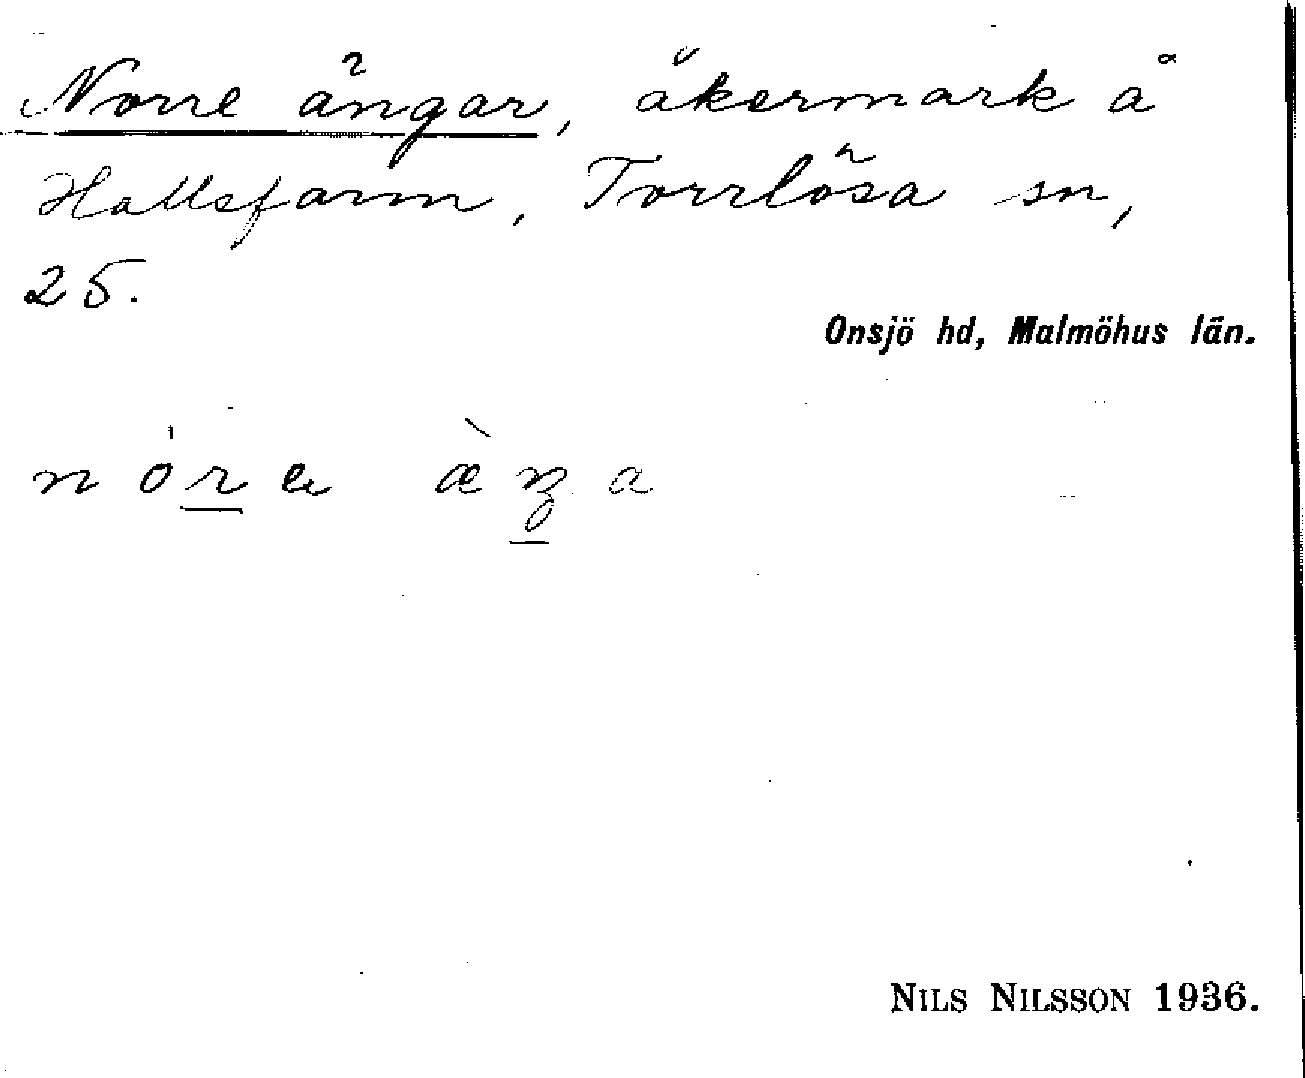 Norre ängar, åkermark å
Hallsfarm, Torrlösa sn,
25.
Onsjö hd, Malmöhus län.
nóre æ̀ŋa
NILS NILSSON 1936.